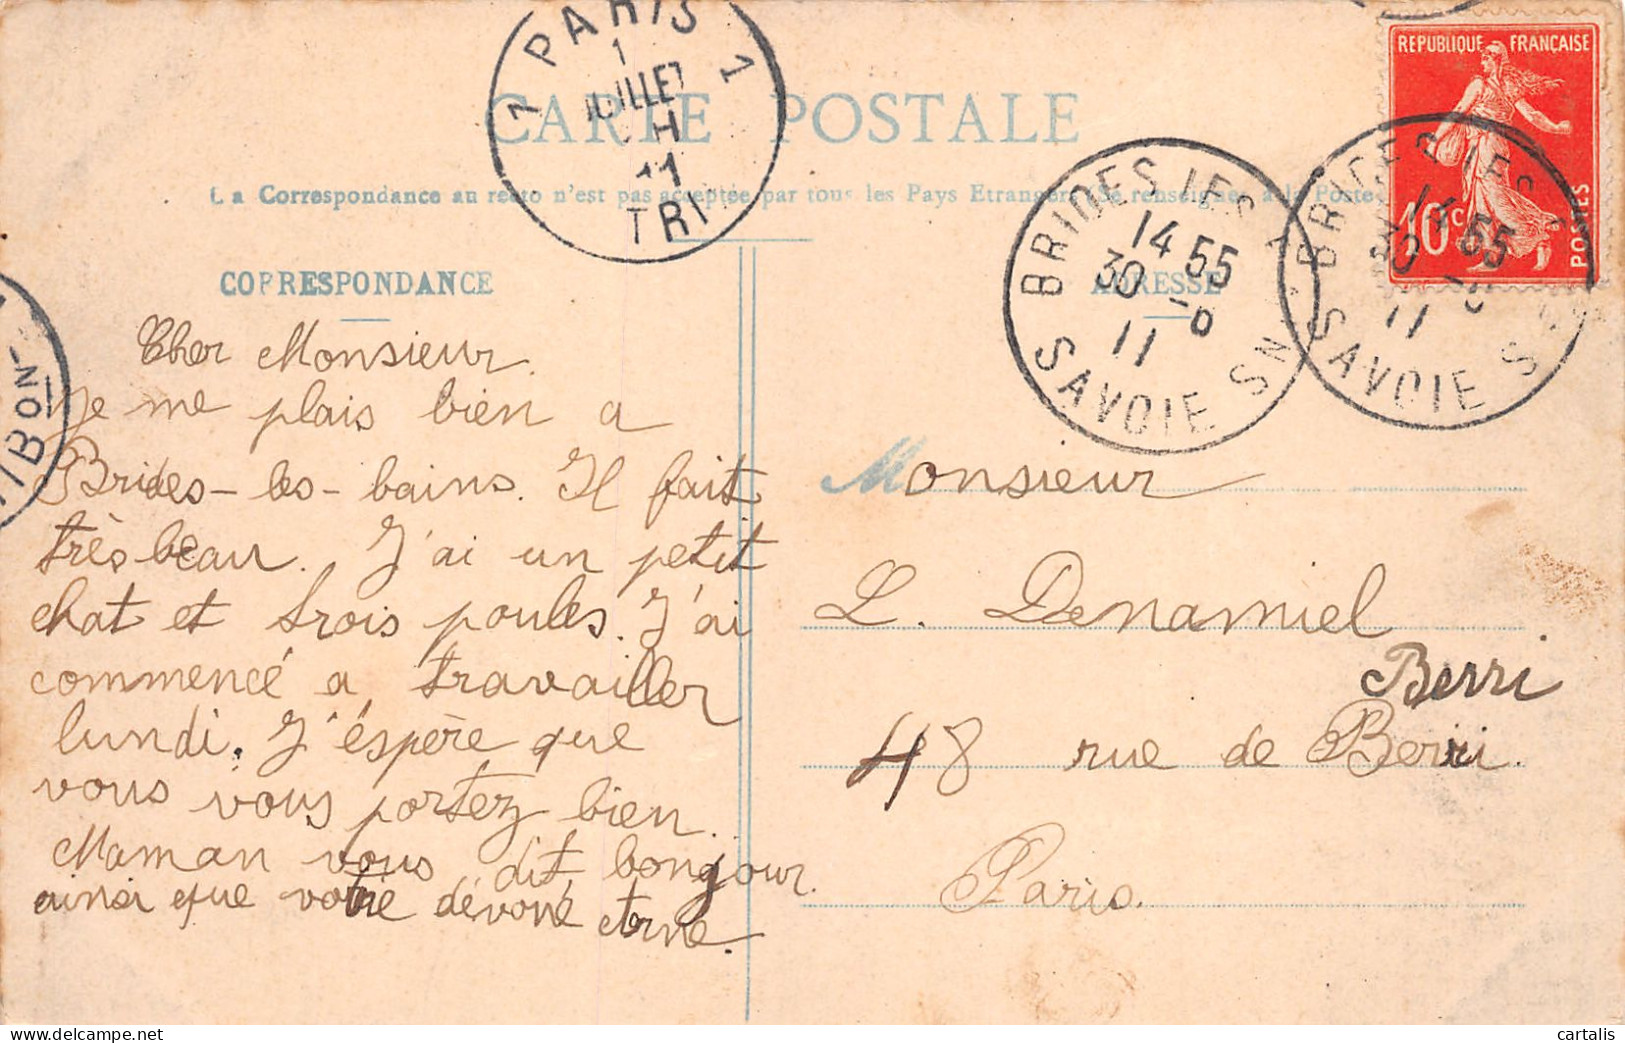 CARTE POSTALE
La Correspondance au recto n'est pas acceptée par tous les Pays Etrangers (Se renseigner à la Poste
CORRESPONDANCE
Cher Monsieur.
Je me plais bien a
Brides-les-bains. Il fait
très beau. J'ai un petit
chat et trois poules. J'ai
commencé a travailler
lundi. J'éspère que
vous vous portez bien.
Maman vous dit bonjour.
ainsi que votre dévoué
ADRESSE
Monsieur
L. Denamiel
Berri
48 rue de Berri.
Paris.
REPUBLIQUE FRANÇAISE
10c
POSTES
1 PARIS 1
1
JUILLET
H
11
TRI
BRIDES LES
14 55
30 -6
11
SAVOIE SN
BRIDES LES
14 55
30 -6
11
SAVOIE S
BON
cartalis